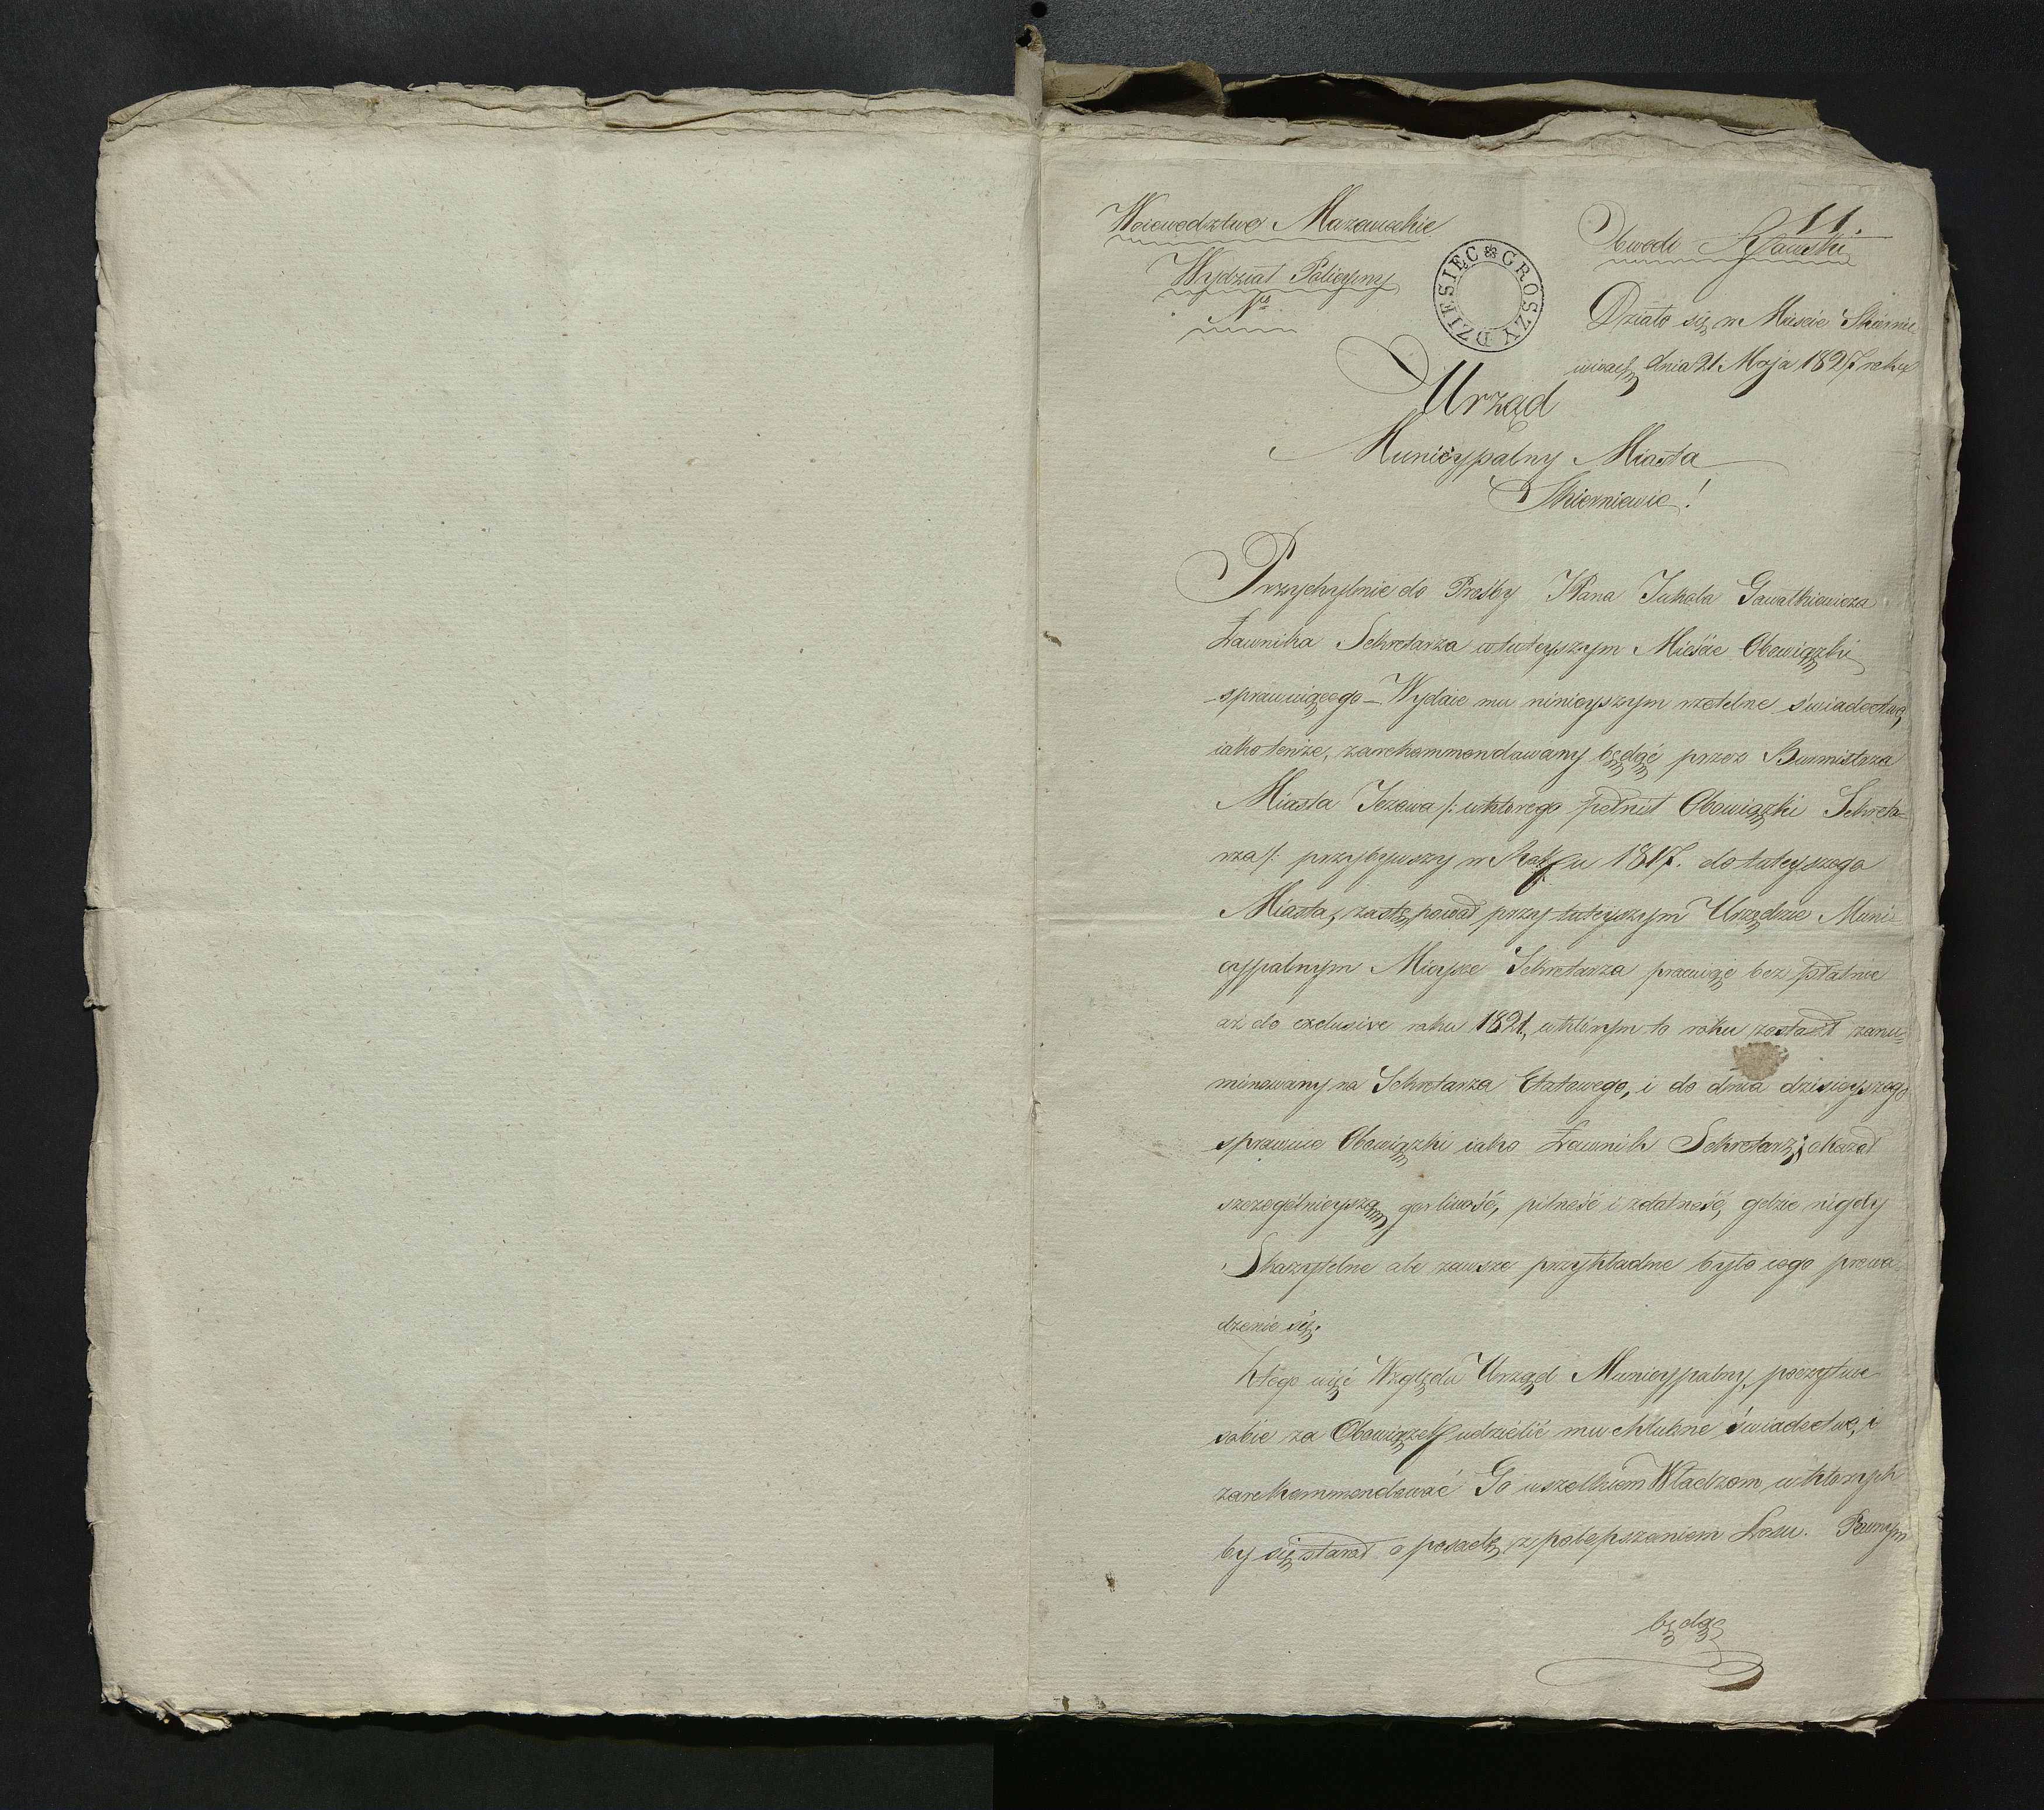 11.
Woiewodztwo Mazowieckie
Obwód Rawski
Wydział Policyiny
Nro
DZIESIĘC GROSZY
Działo się w Mieście Skiernie
wicach dnia 21 Maja 1827 roku
Urząd
Municypalny Miasta
Skierniewic!
Przychylnie do Prośby JPana Jakóba Gawalkiewicza
Ławnika Sekretarza w tuteyszym Mieście Obowiązki
sprawuiącego – Wydaie mu ninieyszym rzetelne świadectwo,
iako tenże, zarekommendowany będąć przez Burmistrza
Miasta Jeżowa /: w którego pełnił Obowiązki Sekreta-
rza /: przybywszy w Roku 1817. do tuteyszego
Miasta, zastępował przy tuteyszym Urzędzie Muni-
cypalnym Mieysce Sekretarza pracuiąc bez płatnie
aż do exclusive roku 1821, w którym to roku został zano=
minowany na Sekretarza Etatowego, i do dnia dzisieyszego
sprawuie Obowiązki iako Ławnik Sekretarz; okazał
szczególnieyszą gorliwość, pilność i zdatność, gdzie nigdy
Skazytelne ale zawsze przykładne było iego prowa-
dzenie się.
Ztego więć Względu Urząd Municypalny, poczytuie
sobie za Obowiązek udzielić mu chlubne świadectwo, i
zarekommendować Go wszelkiem Władzom w których
by się starał o posadę z polepszeniem Losu. Pewnym
będąc